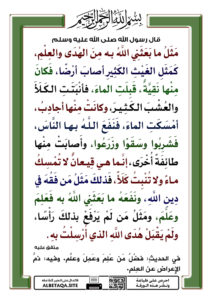 بسم الله الرحمن الرحيم
قال رسول الله صلى الله عليه وسلم
مَثَلُ ما بَعَثَنِي اللَّهُ به مِنَ الهُدَى والعِلْمِ،
كَمَثَلِ الغَيْثِ الكَثِيرِ أصابَ أرْضًا، فَكانَ
مِنْها نَقِيَّةٌ، قَبِلَتِ الماءَ، فأنْبَتَتِ الكَلَأَ
والعُشْبَ الكَثِيرَ، وكانَتْ مِنْها أجادِبُ،
أمْسَكَتِ الماءَ، فَنَفَعَ اللَّهُ بها النَّاسَ،
فَشَرِبُوا وسَقَوْا وزَرَعُوا، وأَصابَتْ مِنْها
طائِفَةً أُخْرَى، إنَّما هي قِيعانٌ لا تُمْسِكُ
ماءً ولا تُنْبِتُ كَلَأً، فَذلكَ مَثَلُ مَن فَقُهَ في
دِينِ اللَّهِ، ونَفَعَهُ ما بَعَثَنِي اللَّهُ به فَعَلِمَ
وعَلَّمَ، ومَثَلُ مَن لَمْ يَرْفَعْ بذلكَ رَأْسًا،
ولَمْ يَقْبَلْ هُدَى اللَّهِ الذي أُرْسِلْتُ بهِ.
متفق عليه
في الحديث: فضل من علم وعمل وعلم، وفيه: ذم
الإعراض عن العلم.
ALBETAQA.SITE